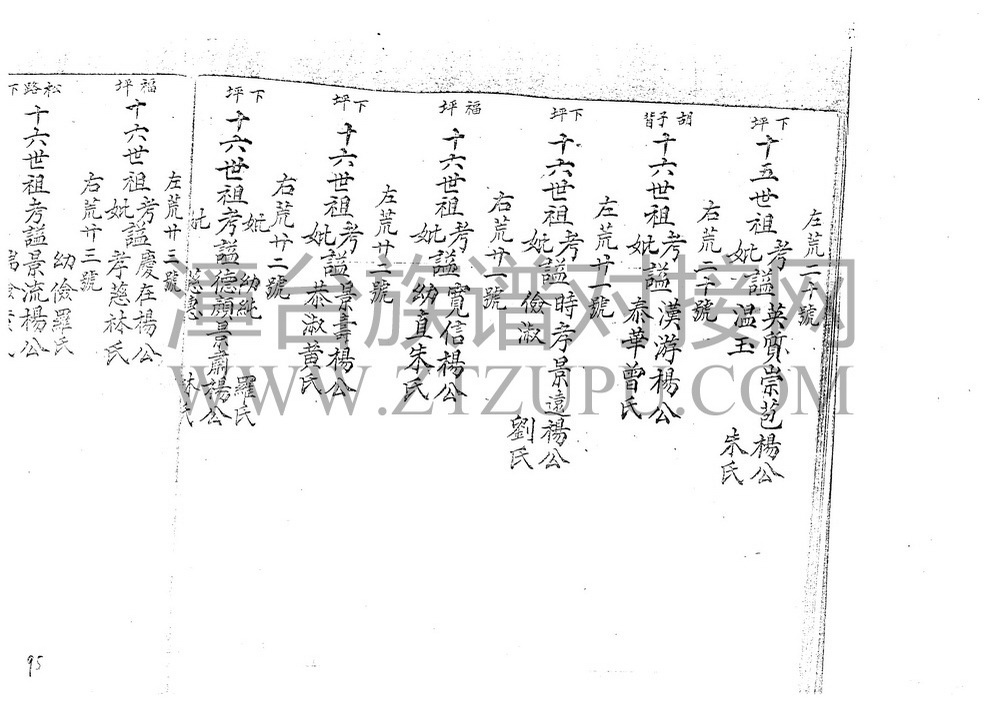 左荒二十號
下坪
十五世祖考妣謚英實崇苞楊公
温玉朱氏
右荒二十號
胡子背
十六世祖考妣謚漢游楊公
泰華曾氏
左荒廿一號
下坪
十六世祖考妣謚時孝景遠楊公
儉淑劉氏
右荒廿一號
福坪
十六世祖考妣謚寬信楊公
幼直朱氏
左荒廿二號
下坪
十六世祖考妣謚景壽楊公
恭淑黄氏
右荒廿二號
下坪
妣幼純羅氏
十六世祖考謚德顏景肅楊公
妣慈惠林氏
左荒廿三號
福坪
十六世祖考妣謚慶在楊公
孝慈林氏
右荒廿三號
松路下
幼儉羅氏
十六世祖考謚景流楊公
漳台族谱对接网
WWW.ZTZUPU.COM
95